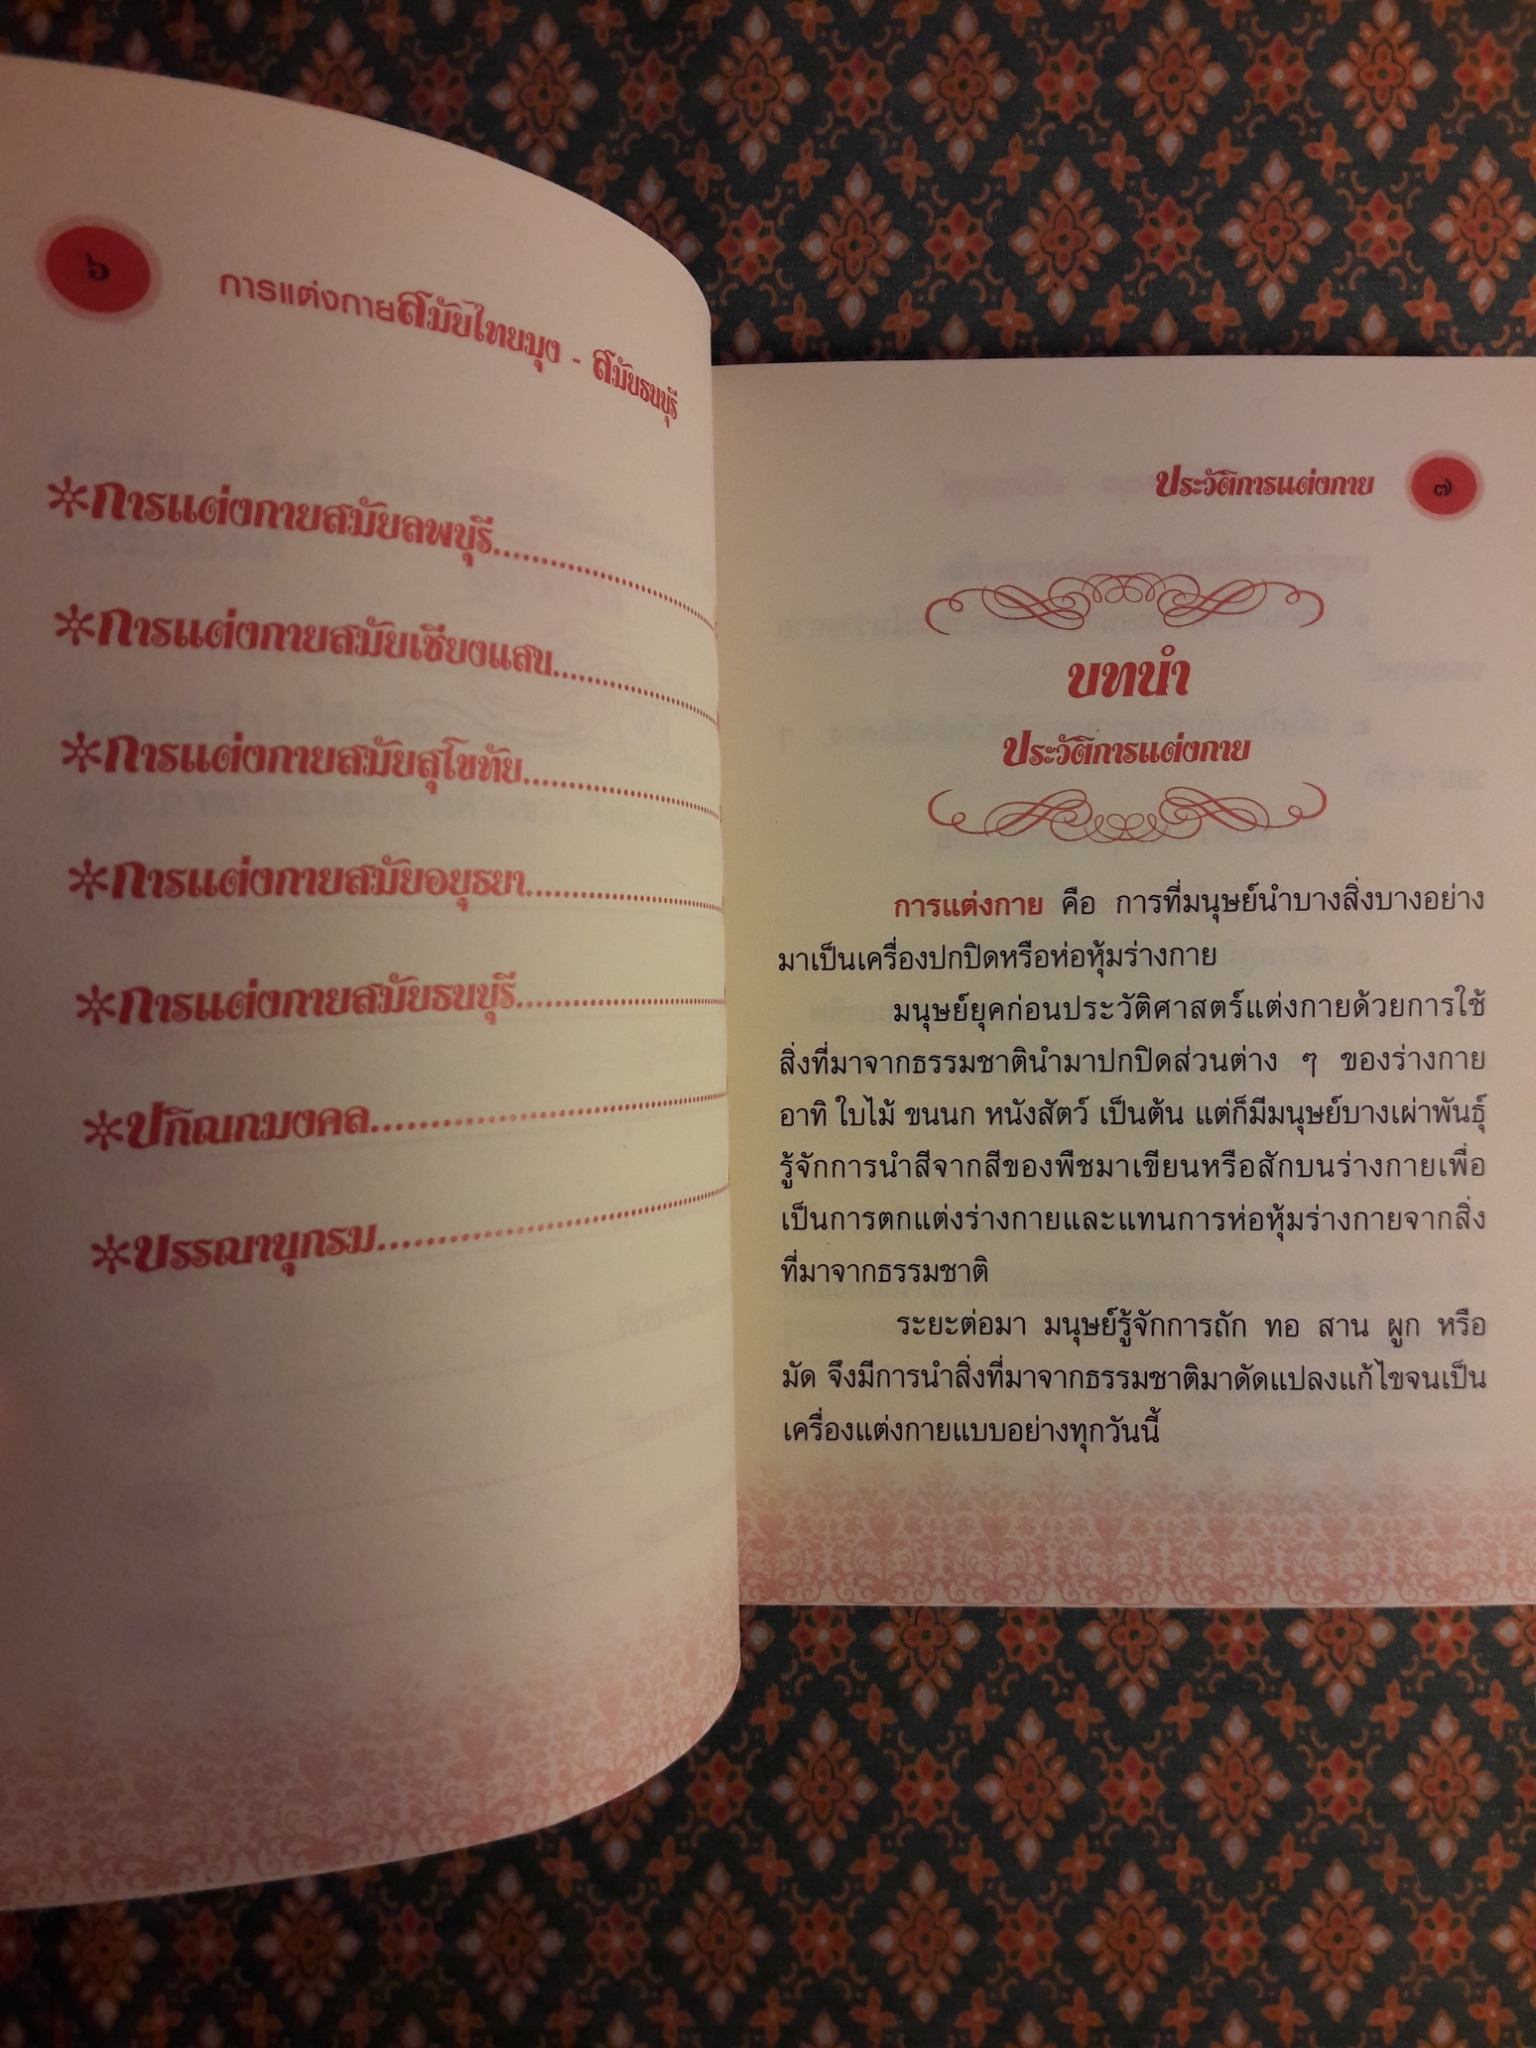 ๖
การแต่งกายสมัยไทยมุง - สมัยธนบุรี
✲การแต่งกายสมัยลพบุรี..............................
✲การแต่งกายสมัยเชียงแสน..............................
✲การแต่งกายสมัยสุโขทัย..............................
✲การแต่งกายสมัยอยุธยา..............................
✲การแต่งกายสมัยธนบุรี..............................
✲ปกิณกมงคล..............................
✲บรรณานุกรม..............................
ประวัติการแต่งกาย ๗
บทนำ
ประวัติการแต่งกาย
การแต่งกาย คือ การที่มนุษย์นำบางสิ่งบางอย่าง
มาเป็นเครื่องปกปิดหรือห่อหุ้มร่างกาย
มนุษย์ยุคก่อนประวัติศาสตร์แต่งกายด้วยการใช้
สิ่งที่มาจากธรรมชาตินำมาปกปิดส่วนต่าง ๆ ของร่างกาย
อาทิ ใบไม้ ขนนก หนังสัตว์ เป็นต้น แต่ก็มีมนุษย์บางเผ่าพันธุ์
รู้จักการนำสีจากสีของพืชมาเขียนหรือสักบนร่างกายเพื่อ
เป็นการตกแต่งร่างกายและแทนการห่อหุ้มร่างกายจากสิ่ง
ที่มาจากธรรมชาติ
ระยะต่อมา มนุษย์รู้จักการถัก ทอ สาน ผูก หรือ
มัด จึงมีการนำสิ่งที่มาจากธรรมชาติมาดัดแปลงแก้ไขจนเป็น
เครื่องแต่งกายแบบอย่างทุกวันนี้